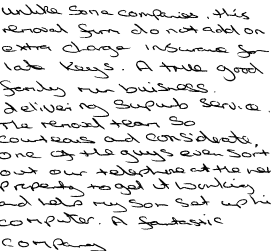 Unlike some companies, this
removal firm do not add on
extra charge insurance for
late keys. A true good
family run buisness.
delivering Superb service.
The removal team so
courteous and considerate,
one of the guys even sort
out our telephone at the new
property to get it working
and help my son set up his
computer. A fantastic
company